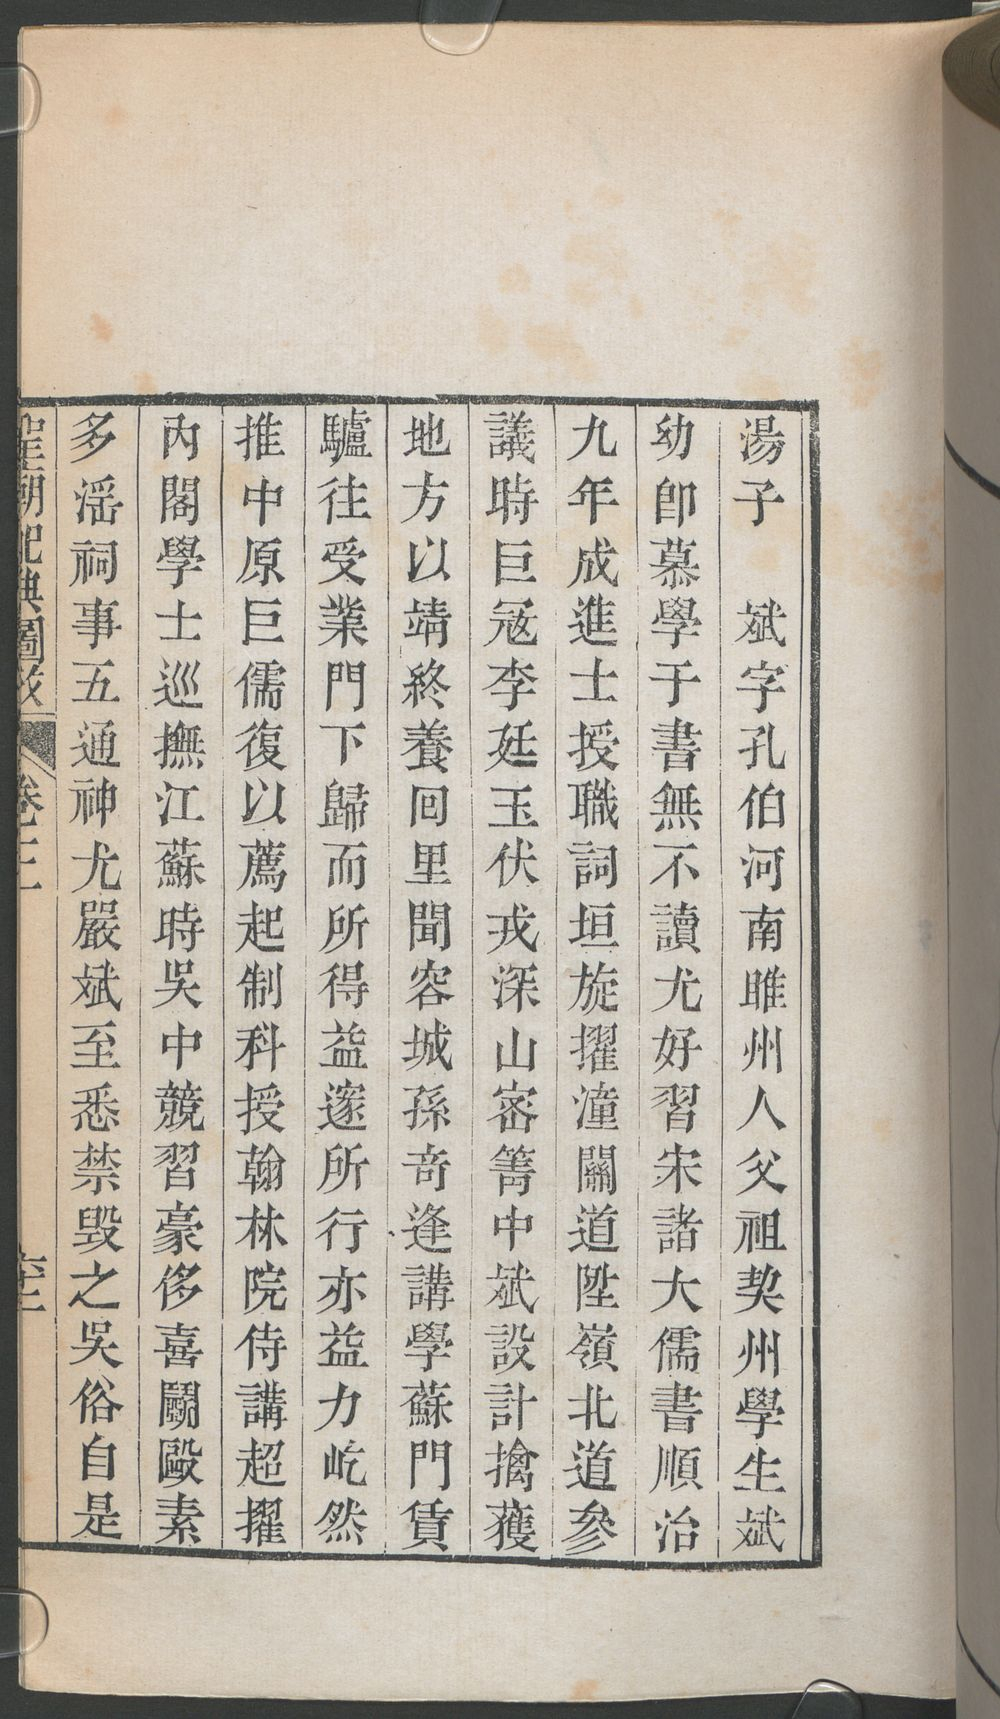 湯子　斌字孔伯河南睢州人父祖契州學生斌
幼卽慕學于書無不讀尤好習宋諸大儒書順治
九年成進士授職詞垣旋擢潼關道陞嶺北道參
議時巨寇李廷玉伏戎深山密箐中斌設計擒獲
地方以靖終養回里聞容城孫奇逢講學蘇門賃
驢往受業門下歸而所得益邃所行亦益力屹然
推中原巨儒復以薦起制科授翰林院侍講超擢
內閣學士巡撫江蘇時吳中競習豪侈喜鬬毆素
多淫祠事五通神尤嚴斌至悉禁毀之吳俗自是
聖朝祀典圖攷 卷三 六二